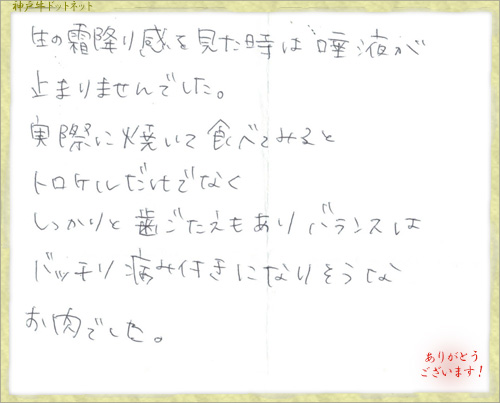 神戸牛ドットネット
生の霜降り感を見た時は唾液が
止まりませんでした。
実際に焼いて食べてみると
トロケルだけでなく
しっかりと歯ごたえもありバランスは
バッチリ病み付きになりそうな
お肉でした。
ありがとう
ございます！